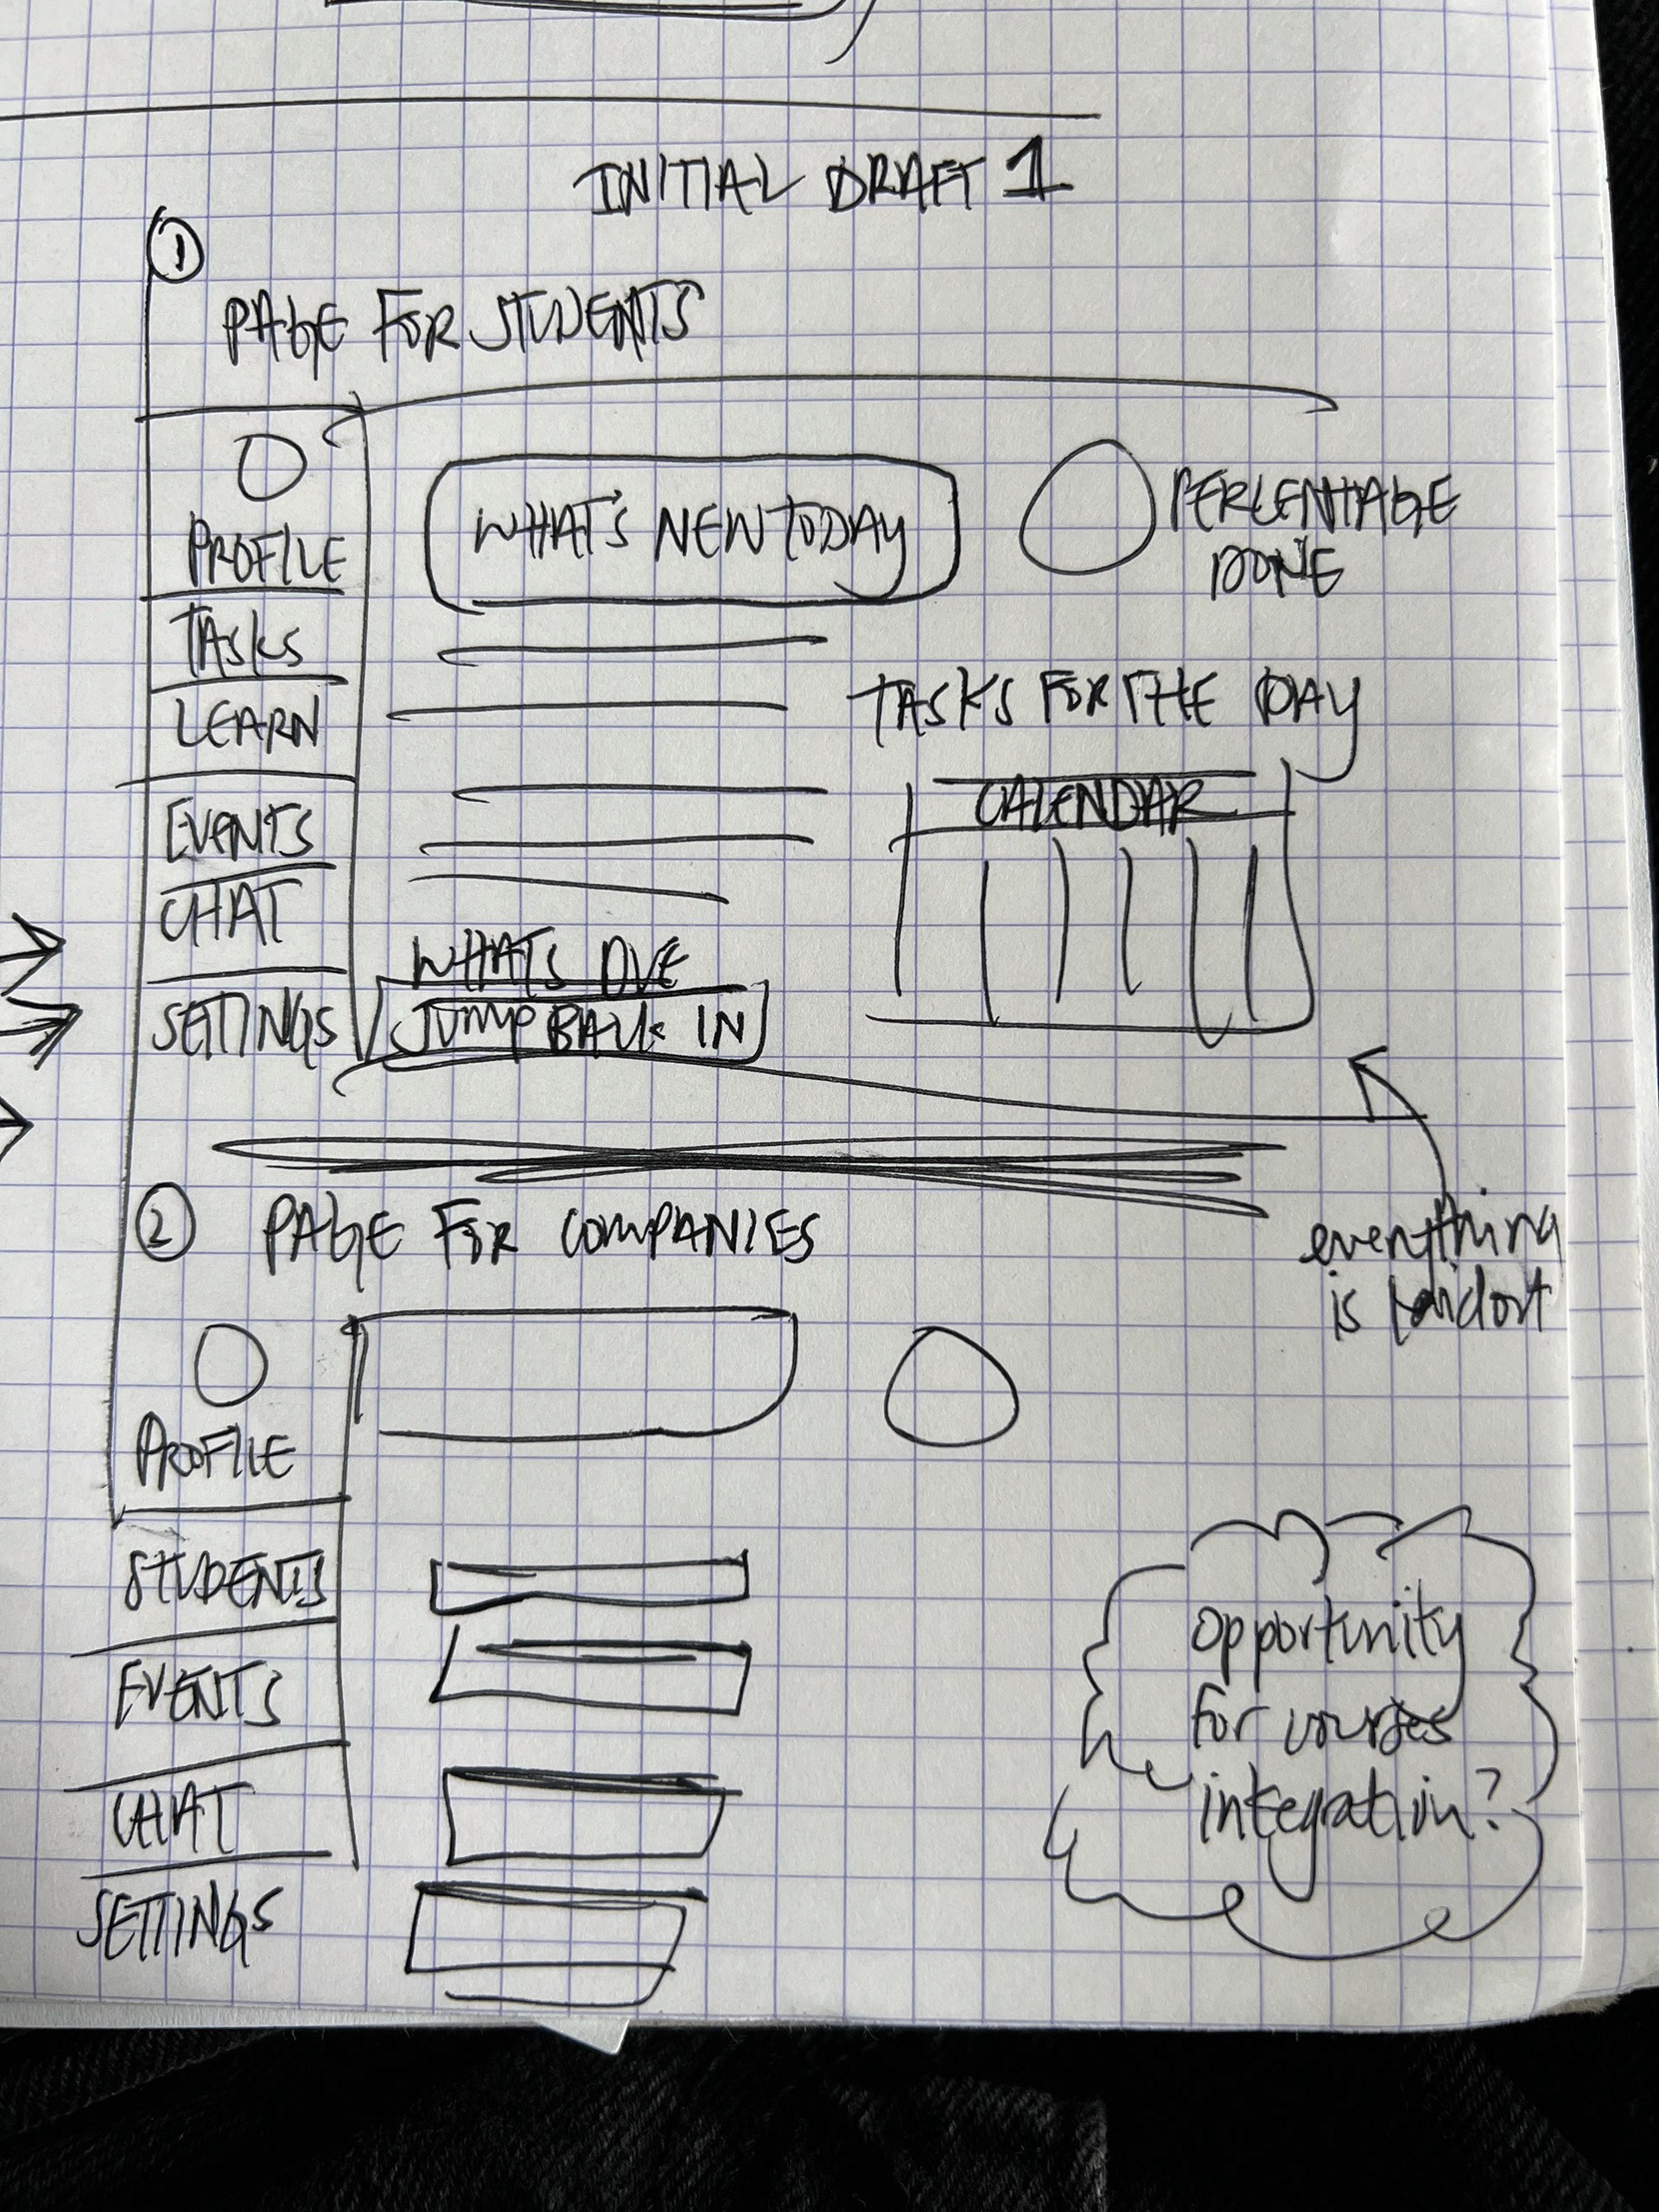 INITIAL DRAFT 1
1
PAGE FOR STUDENTS
PROFILE
TASKS
LEARN
EVENTS
CHAT
SETTINGS
WHAT'S NEW TODAY
PERCENTAGE
DONE
TASKS FOR THE DAY
CALENDAR
WHATS DUE
JUMP BACK IN
everything
is laid out
2 PAGE FOR COMPANIES
PROFILE
STUDENTS
EVENTS
CHAT
SETTINGS
opportunity
for courses
integration?